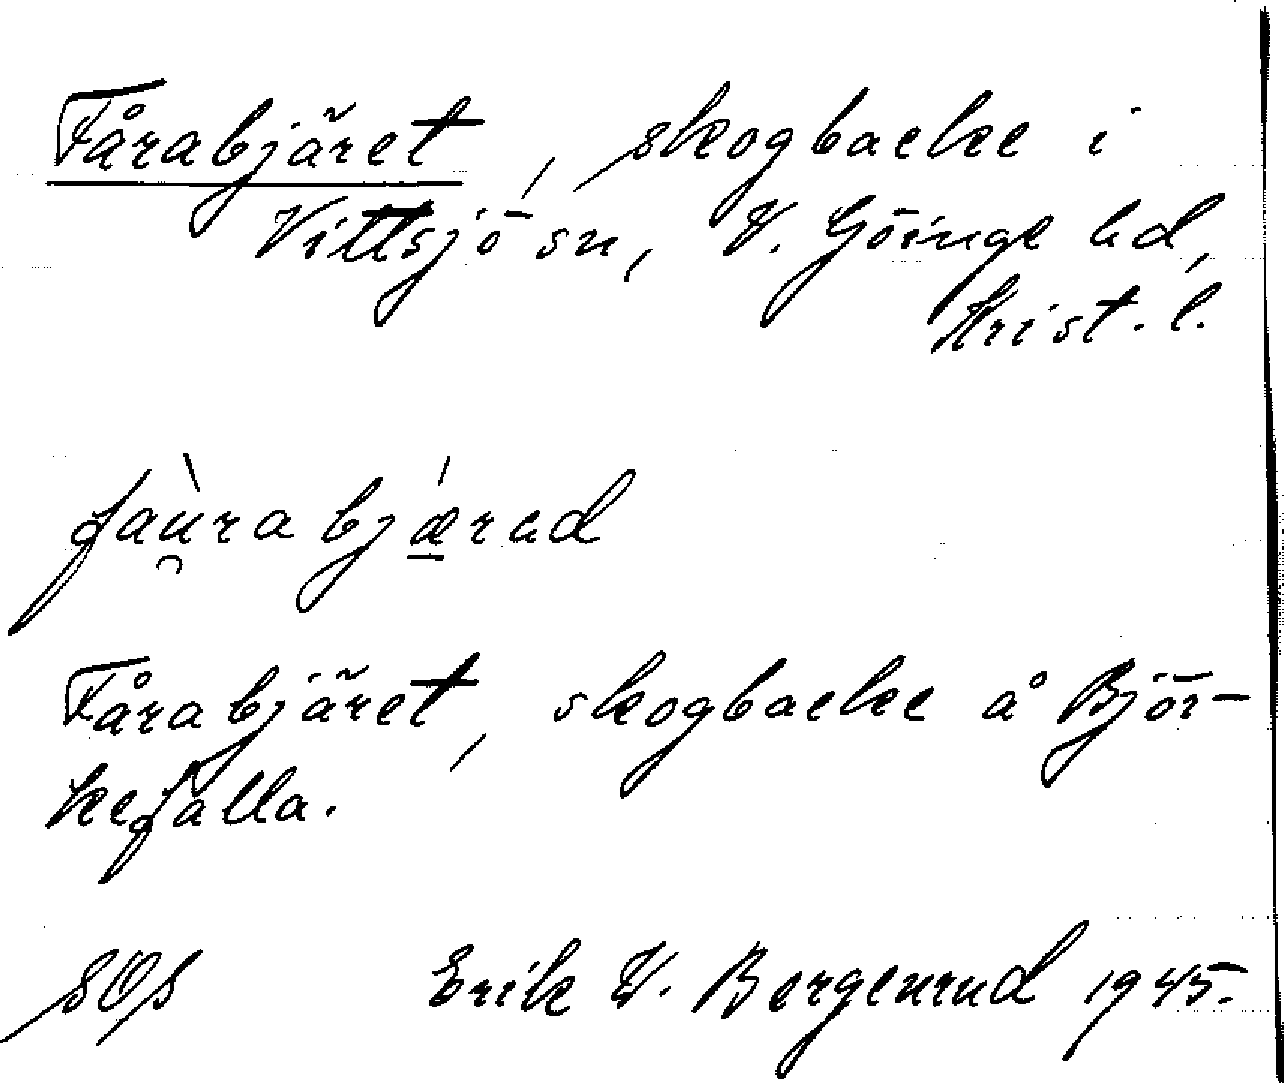 Fårabjäret, skogbacke i
Vittsjö sn, V. Göinge hd,
Krist. l.
faù̯rabjǽ̲rad
Fårabjäret, skogbacke å Björ-
kefalla.
SOS Erik W. Bergenrud 1945.